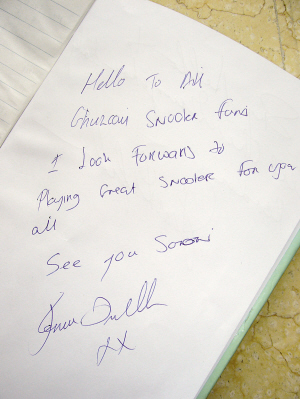 Hello To All
Snooker fans
I Look Forward to
Playing Great Snooker For you
all
See you Soon
XX